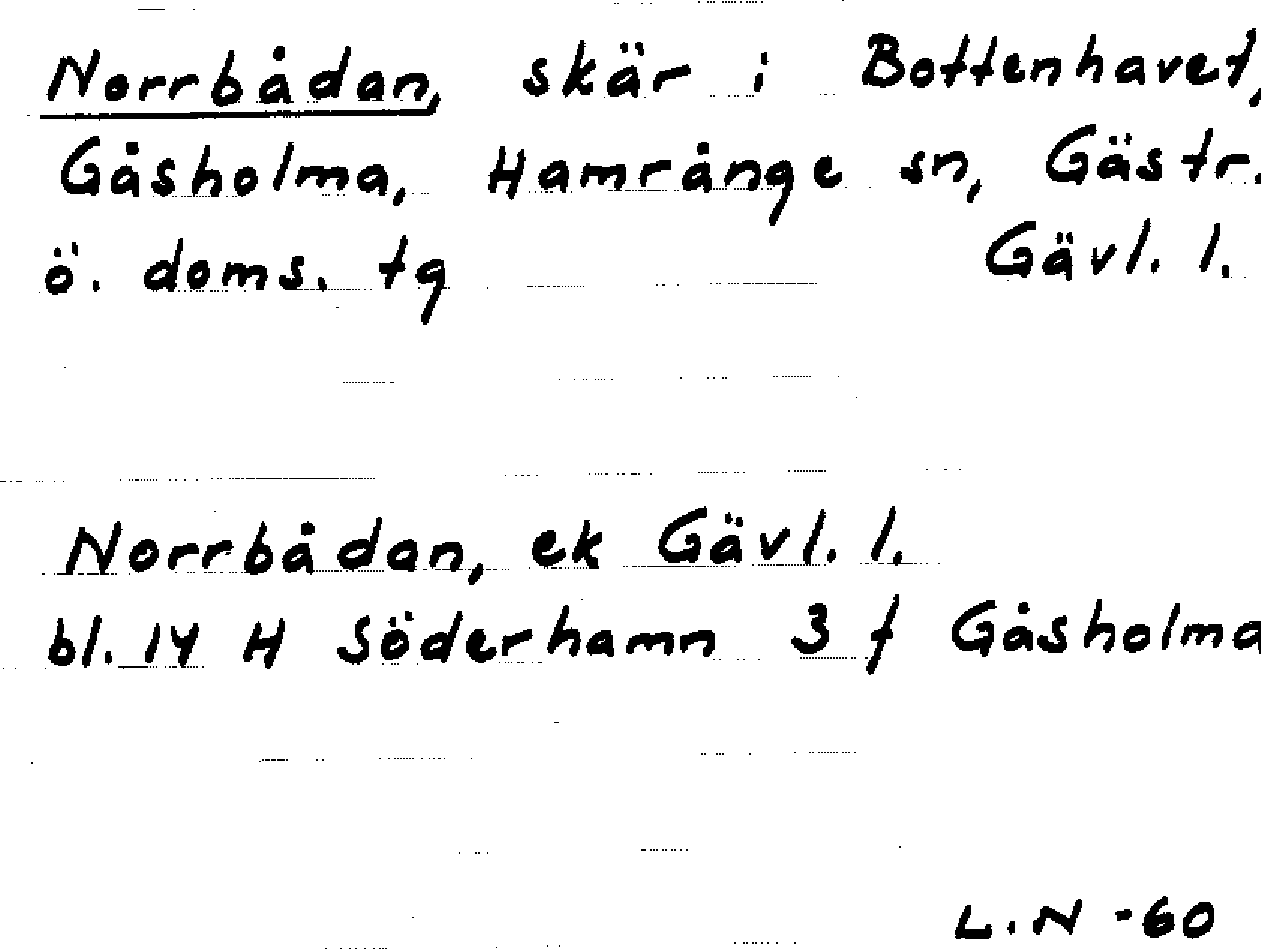 Norrbådan, skär i Bottenhavet,
Gåsholma, Hamrånge sn, Gästr.
ö. doms. tg Gävl. l.
Norrbådan, ek Gävl. l.
bl. 14 H Söderhamn 3 f Gåsholma
L.N -60